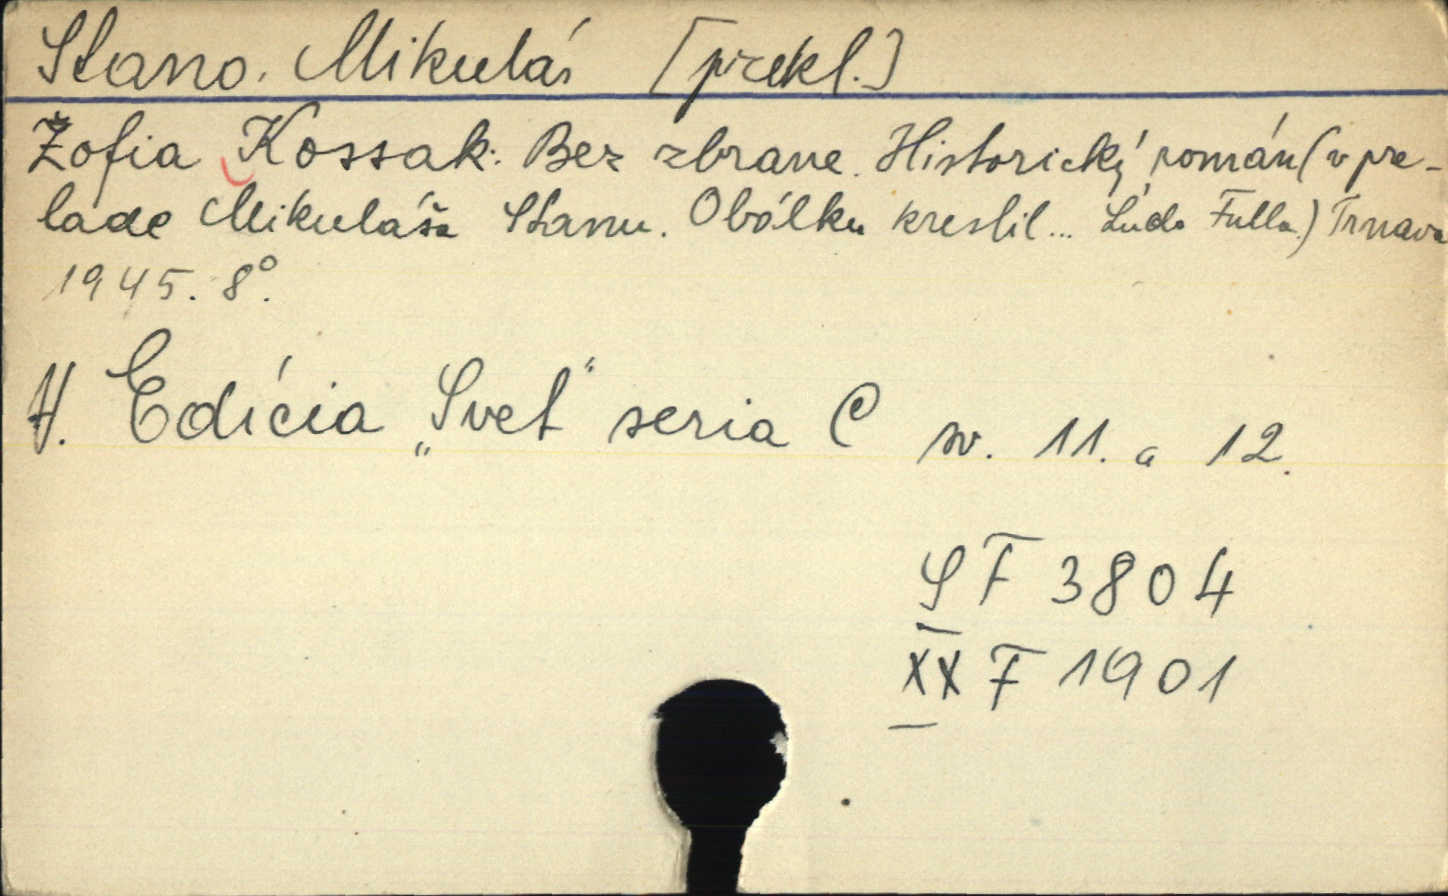 Stano. Mikuláš [prekl.]
Žofia Kossak: Bez zbrane. Historický román (v pre-
lade Mikuláša Stanu. Obálku kreslil... Ĺudo Fulla.) Trnava
1945. 8°.
H. Edícia „Svet“ seria C sv. 11. a 12.
SF 3804
XX F 1901